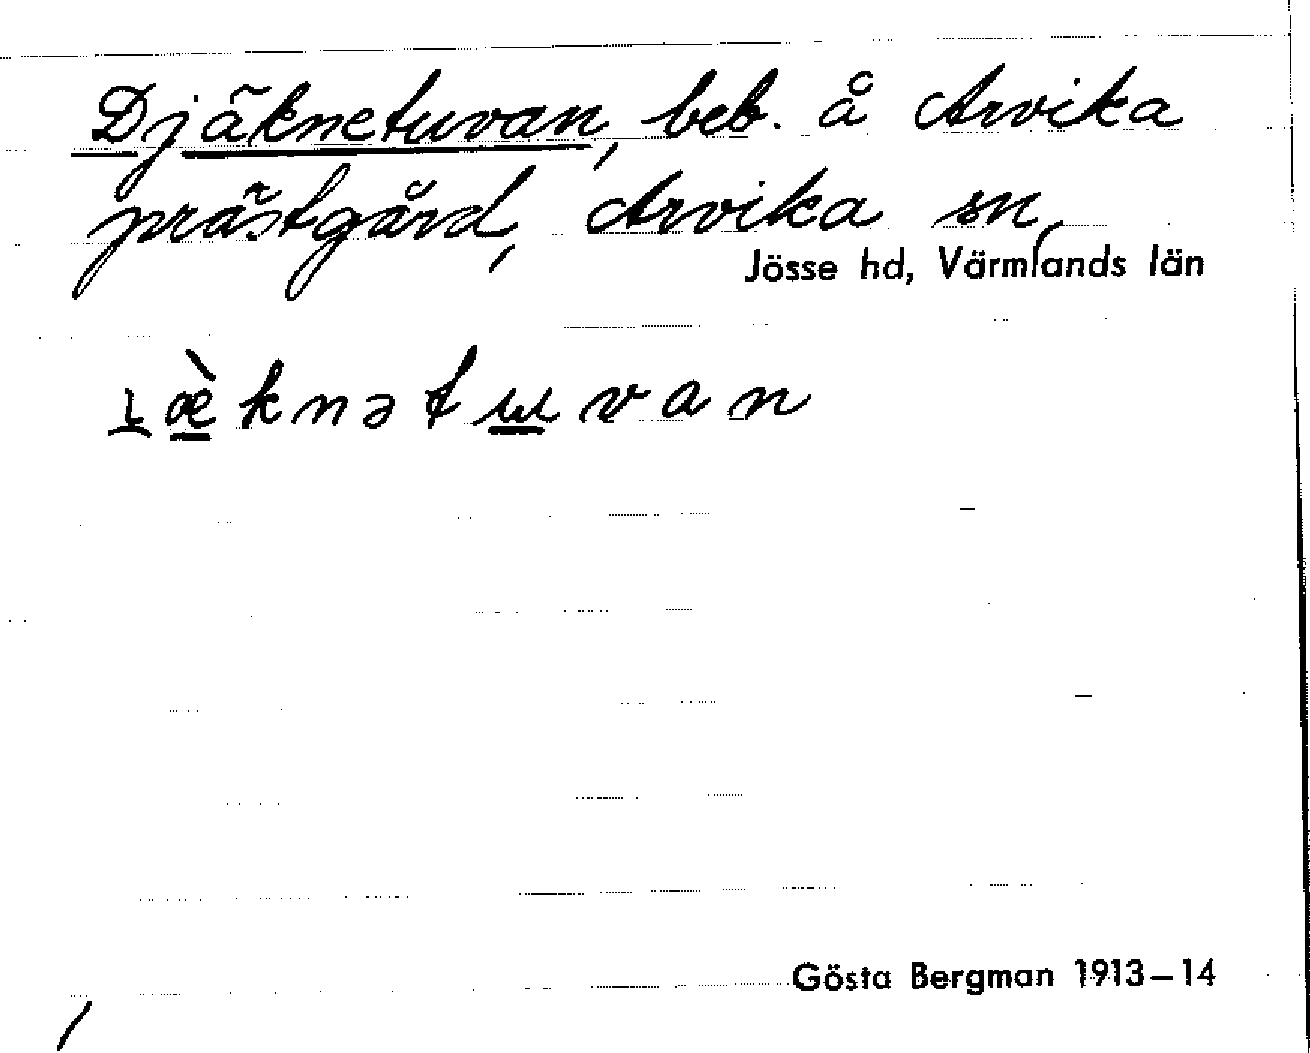 Djäknetuvan, beb. å Arvika
prästgård, Arvika sn,
Jösse hd, Värmlands län
knətɯvan
Gösta Bergman 1913–14